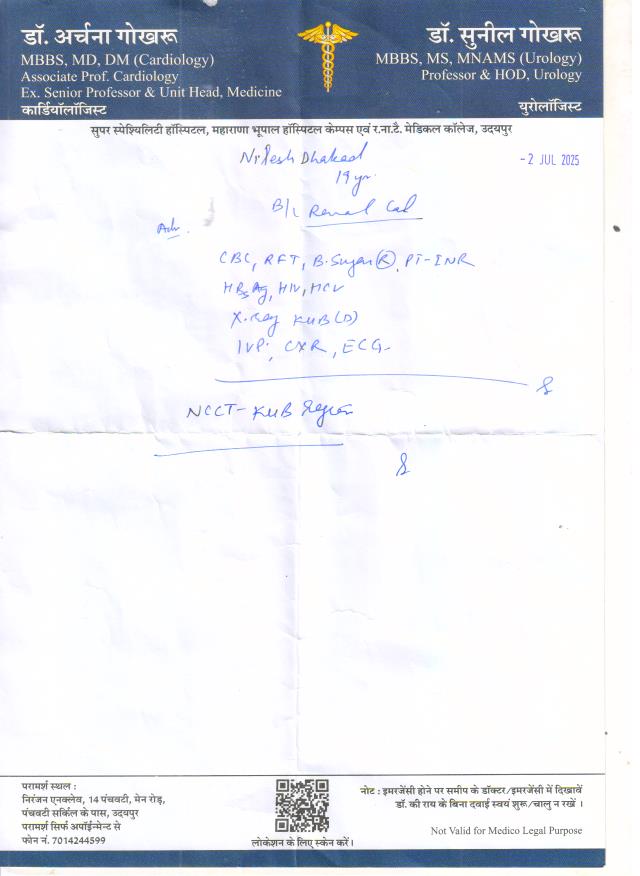 डॉ. अर्चना गोखरू
MBBS, MD, DM (Cardiology)
Associate Prof. Cardiology
Ex. Senior Professor & Unit Head, Medicine
कार्डियॉलॉजिस्ट
डॉ. सुनील गोखरू
MBBS, MS, MNAMS (Urology)
Professor & HOD, Urology
युरोलॉजिस्ट
सुपर स्पेश्यिलिटी हॉस्पिटल, महाराणा भूपाल हॉस्पिटल केम्पस एवं र.ना.टै. मेडिकल कॉलेज, उदयपुर
Nilesh Dhakad
- 2 JUL 2025
19 yr.
B/L Renal Cal
Adv.
CBC, RFT, B.Sugar (R), PT-INR
HBsAg, HIV, HCV
X.Ray KUB (D)
IVP, CXR, ECG
NCCT - KUB Region
परामर्श स्थल :
निरंजन एनक्लेव, 14 पंचवटी, मेन रोड़,
पंचवटी सर्किल के पास, उदयपुर
परामर्श सिर्फ अपॉईन्मेन्ट से
फोन नं. 7014244599
लोकेशन के लिए स्केन करें।
नोट : इमरजेंसी होने पर समीप के डॉक्टर/इमरजेंसी में दिखावें
डॉ. की राय के बिना दवाई स्वयं शुरू/चालु न रखें ।
Not Valid for Medico Legal Purpose